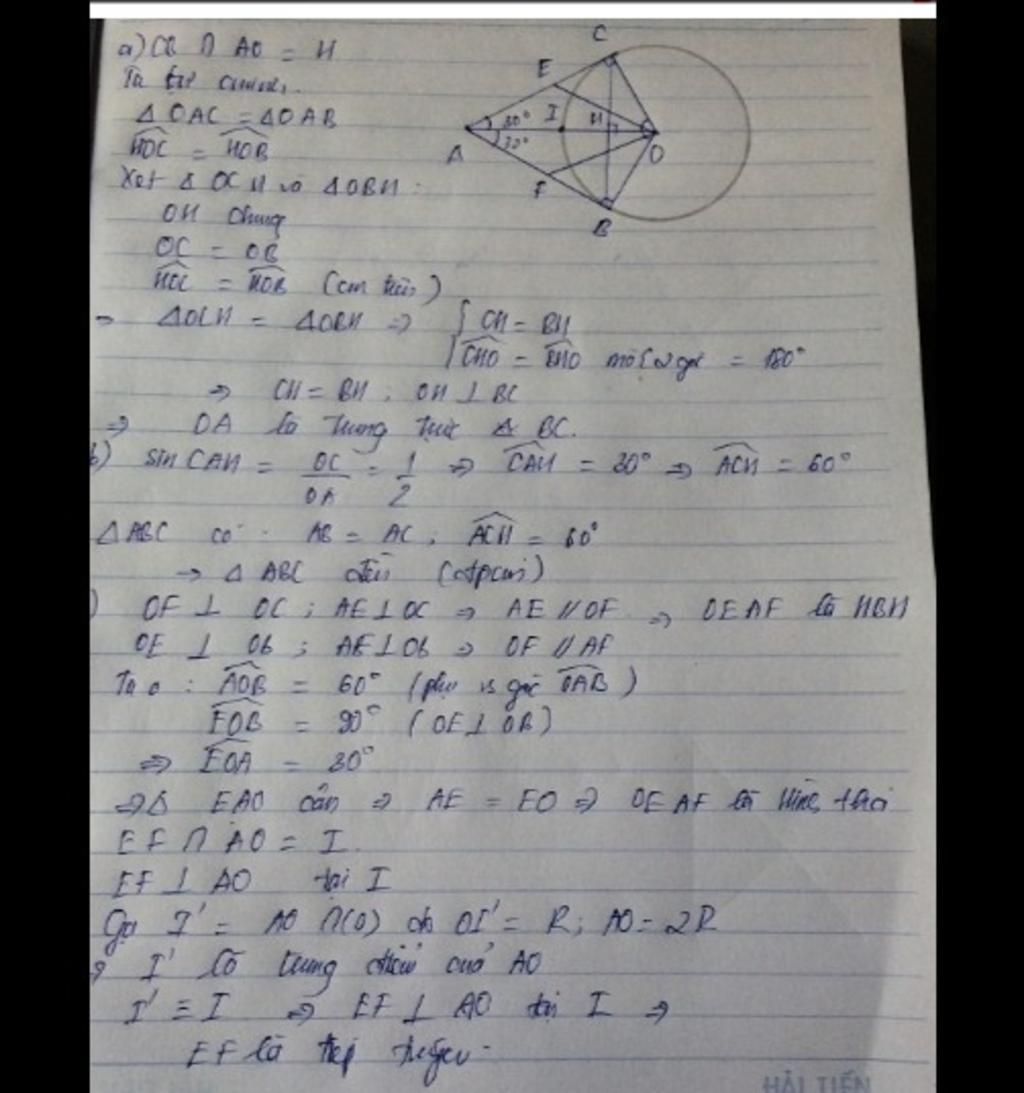 a) CB ∩ AO = H
C
E
I
H
A
30°
30°
O
F
B
Ta
△OAC = △OAB
HOC = HOB
Xét △OCH và △OBH :
OH chung
OC = OB
HOC = HOB (cm trên)
⇒ △OCH = △OBH ⇒ { CH = BH
CHO = BHO mà 2 góc = 180°
⇒ CH = BH ; OH ⊥ BC
⇒ OA là trung trực △ BC.
b) sin CAH = OC/OA = 1/2 ⇒ CAH = 30° ⇒ ACH = 60°
△ABC có : AB = AC ; ACH = 60°
→ △ ABC đều (đpcm)
) OF ⊥ OC ; AE ⊥ OC ⇒ AE // OF ⇒ OEAF là HBH
OE ⊥ OB ; AE ⊥ OB ⇒ OF // AF
Ta : AOB = 60° (phụ vs góc OAB)
EOB = 90° (OE ⊥ OB)
⇒ EOA = 30°
⇒ △ EAO cân ⇒ AE = EO ⇒ OEAF là Hình thoi
EF ∩ AO = I.
EF ⊥ AO tại I
Gọi I' = AO ∩ (O) OI' = R ; AO = 2R
I' là trung điểm của AO
I' ≡ I ⇒ EF ⊥ AO tại I ⇒
EF là tiếp tuyến.
HẢI TIẾN